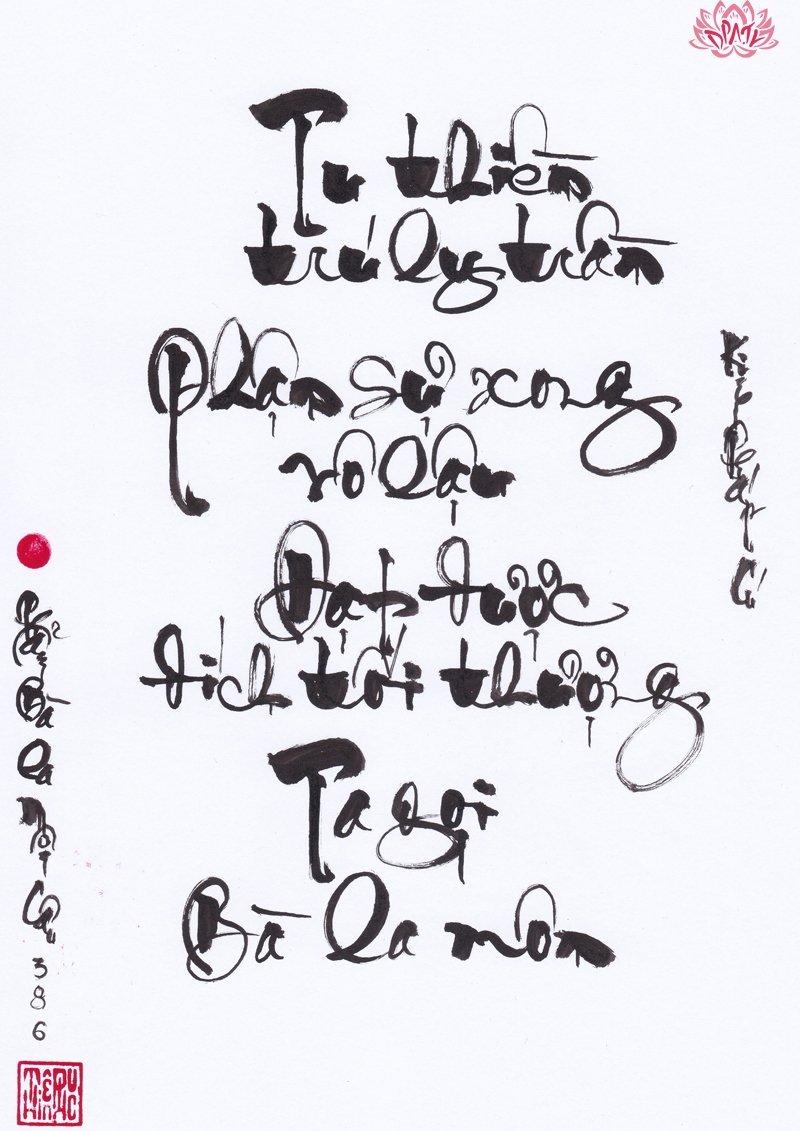 Tu thiền
trú ly trần
Phận sự xong
vô lậu
Đạt được
đích tối thượng
Ta gọi
Bà la môn
Kinh Pháp Cú
Phẩm Bà la môn Câu 386